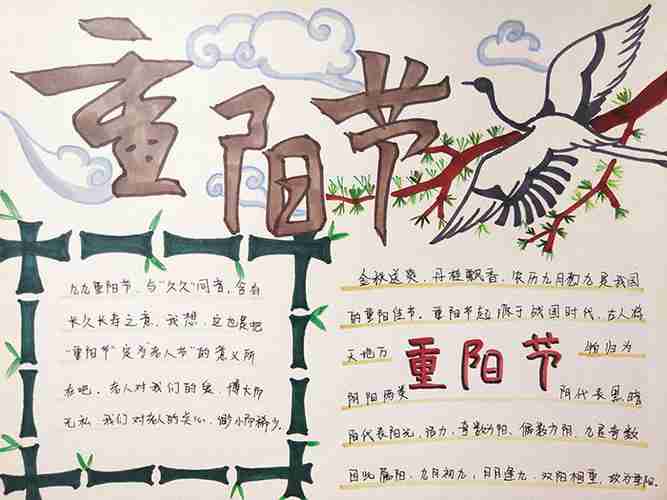 重阳节
九九重阳节,与“久久”同音,含有
长久长寿之意,我想,这也是把
“重阳节”定为老人节”的意义所
在吧。老人对我们的爱,博大而
无私,我们对老人的关心,细小而稀少。
金秋送爽,丹桂飘香,农历九月初九是我国
的重阳佳节。重阳节起源于战国时代,古人将
天地万 物归为
重阳节
阴阳两类 阴代表黑暗
阳代表阳光,活力,奇数为阳,偶数为阴,九是奇数
因此属阳,九月初九,日月逢九,双阳相重,故为重阳。